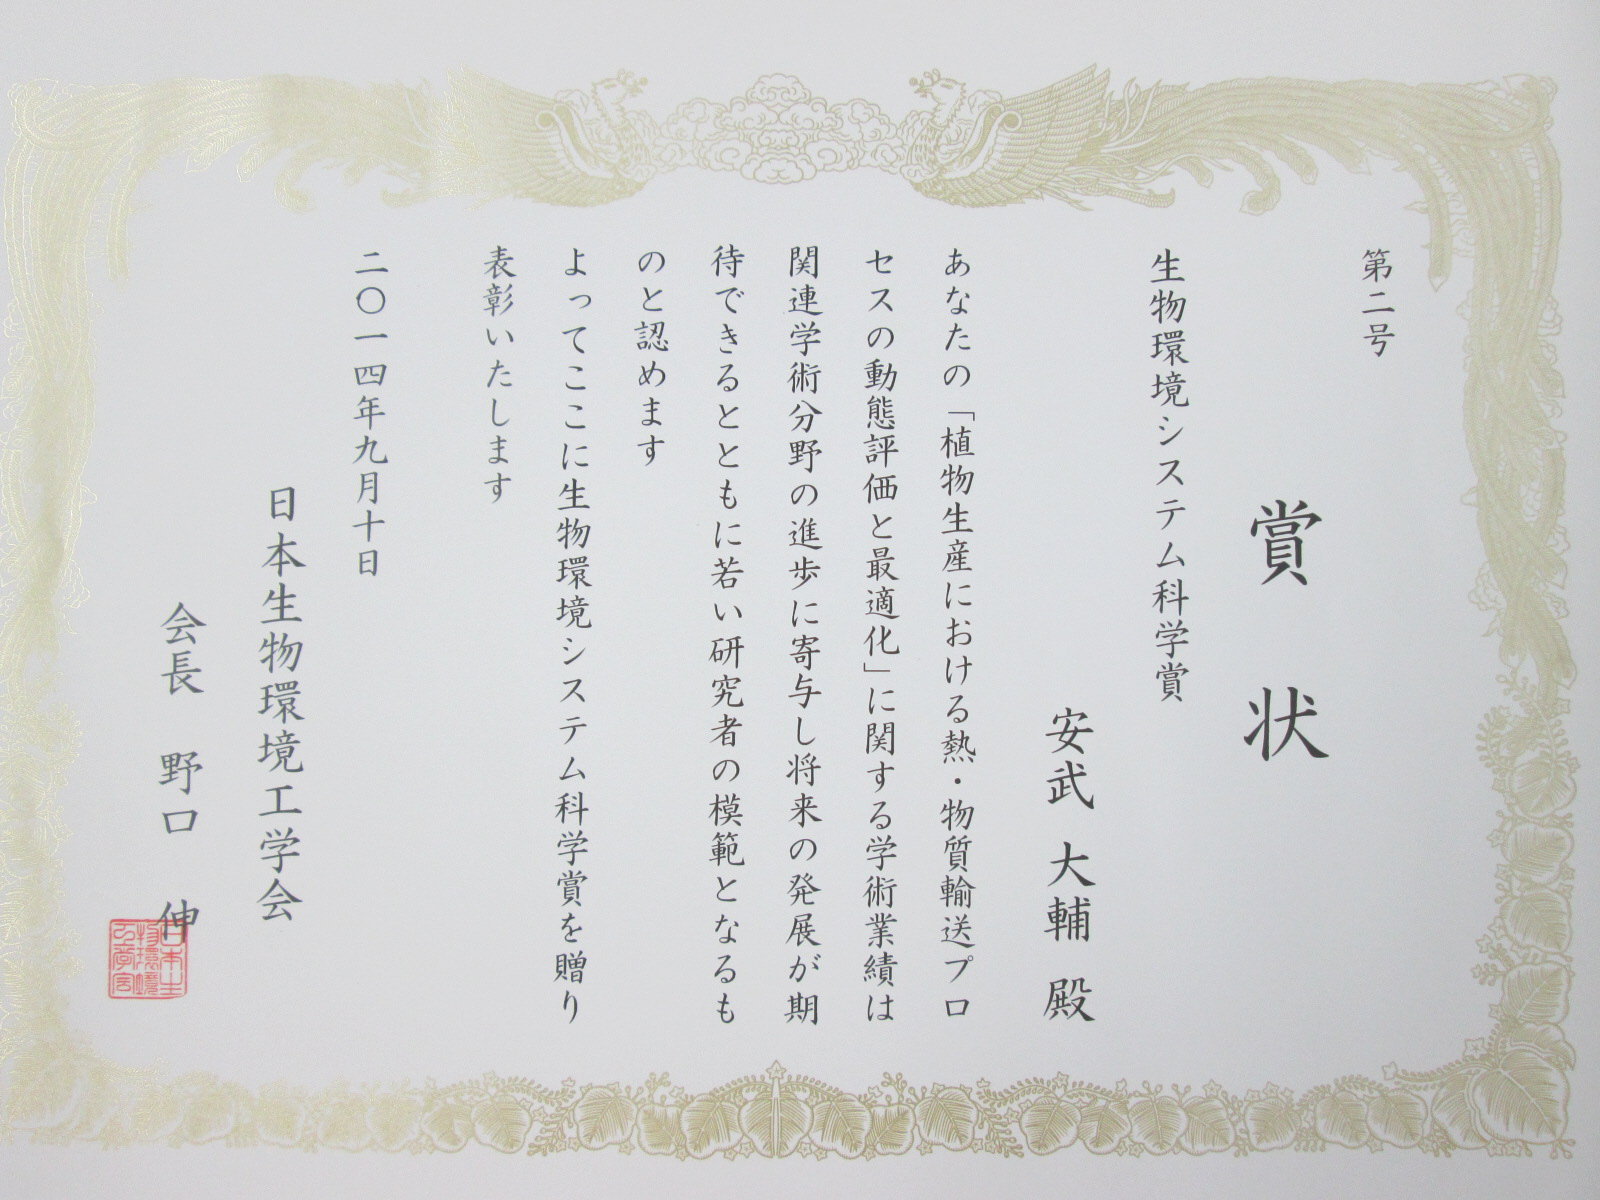 第二号
賞状
生物環境システム科学賞
安武 大輔 殿
あなたの「植物生産における熱・物質輸送プロ
セスの動態評価と最適化」に関する学術業績は
関連学術分野の進歩に寄与し将来の発展が期
待できるとともに若い研究者の模範となるも
のと認めます
よってここに生物環境システム科学賞を贈り
表彰いたします
二〇一四年九月十日
日本生物環境工学会
会長 野口 伸
日本生
物環境
工学会